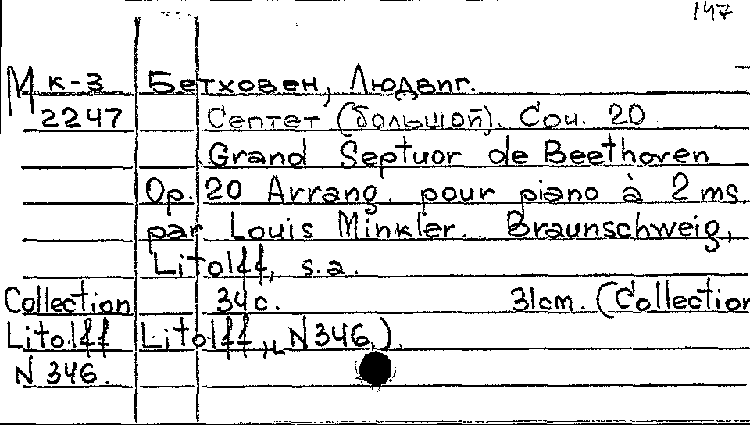 147
М к-3 Бетховен, Людвиг.
2247 Септет (большой). Соч. 20
Grand Septuor de Beethoven
Op. 20 Arrang. pour piano à 2 ms
par Louis Minkler. Braunschweig,
Litolff, s.a.
Collection 34 c. 31cm. (Collection
Litolff Litolff, N 346.)
N 346.